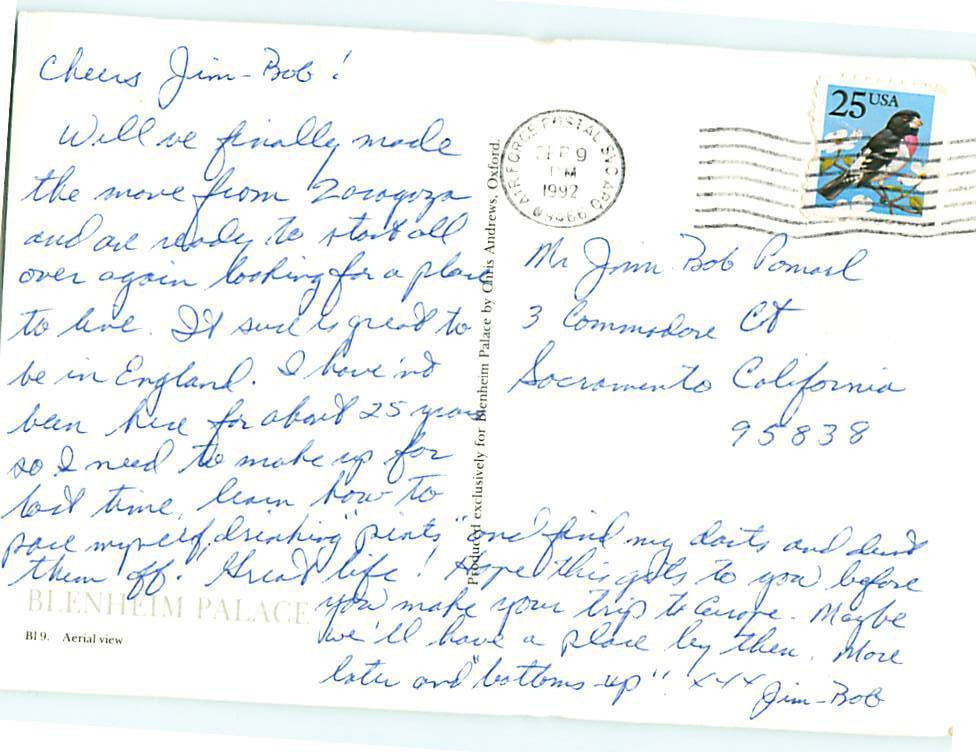 Cheers Jim-Bob!
Well we finally made
the move from Zaragoza
and are ready to start all
over again looking for a place
to live. It sure is great to
be in England. I have'nt
been here for about 25 years
so I need to make up for
lost time, learn how to
pace myself, drinking "pints" and find my darts and dust
them off. Great life! Hope this gets to you before
you make your trip to Europe. Maybe
we'll have a place by then. More
later and "bottoms-up"! xxx
Jim-Bob
BLENHEIM PALACE
Bl 9. Aerial view
Produced exclusively for Blenheim Palace by Chris Andrews, Oxford.
AIR FORCE POSTAL SVC
SEP 9
PM
1992
25 USA
Mr Jim Bob
3 Commodore Ct
Sacramento California
95838